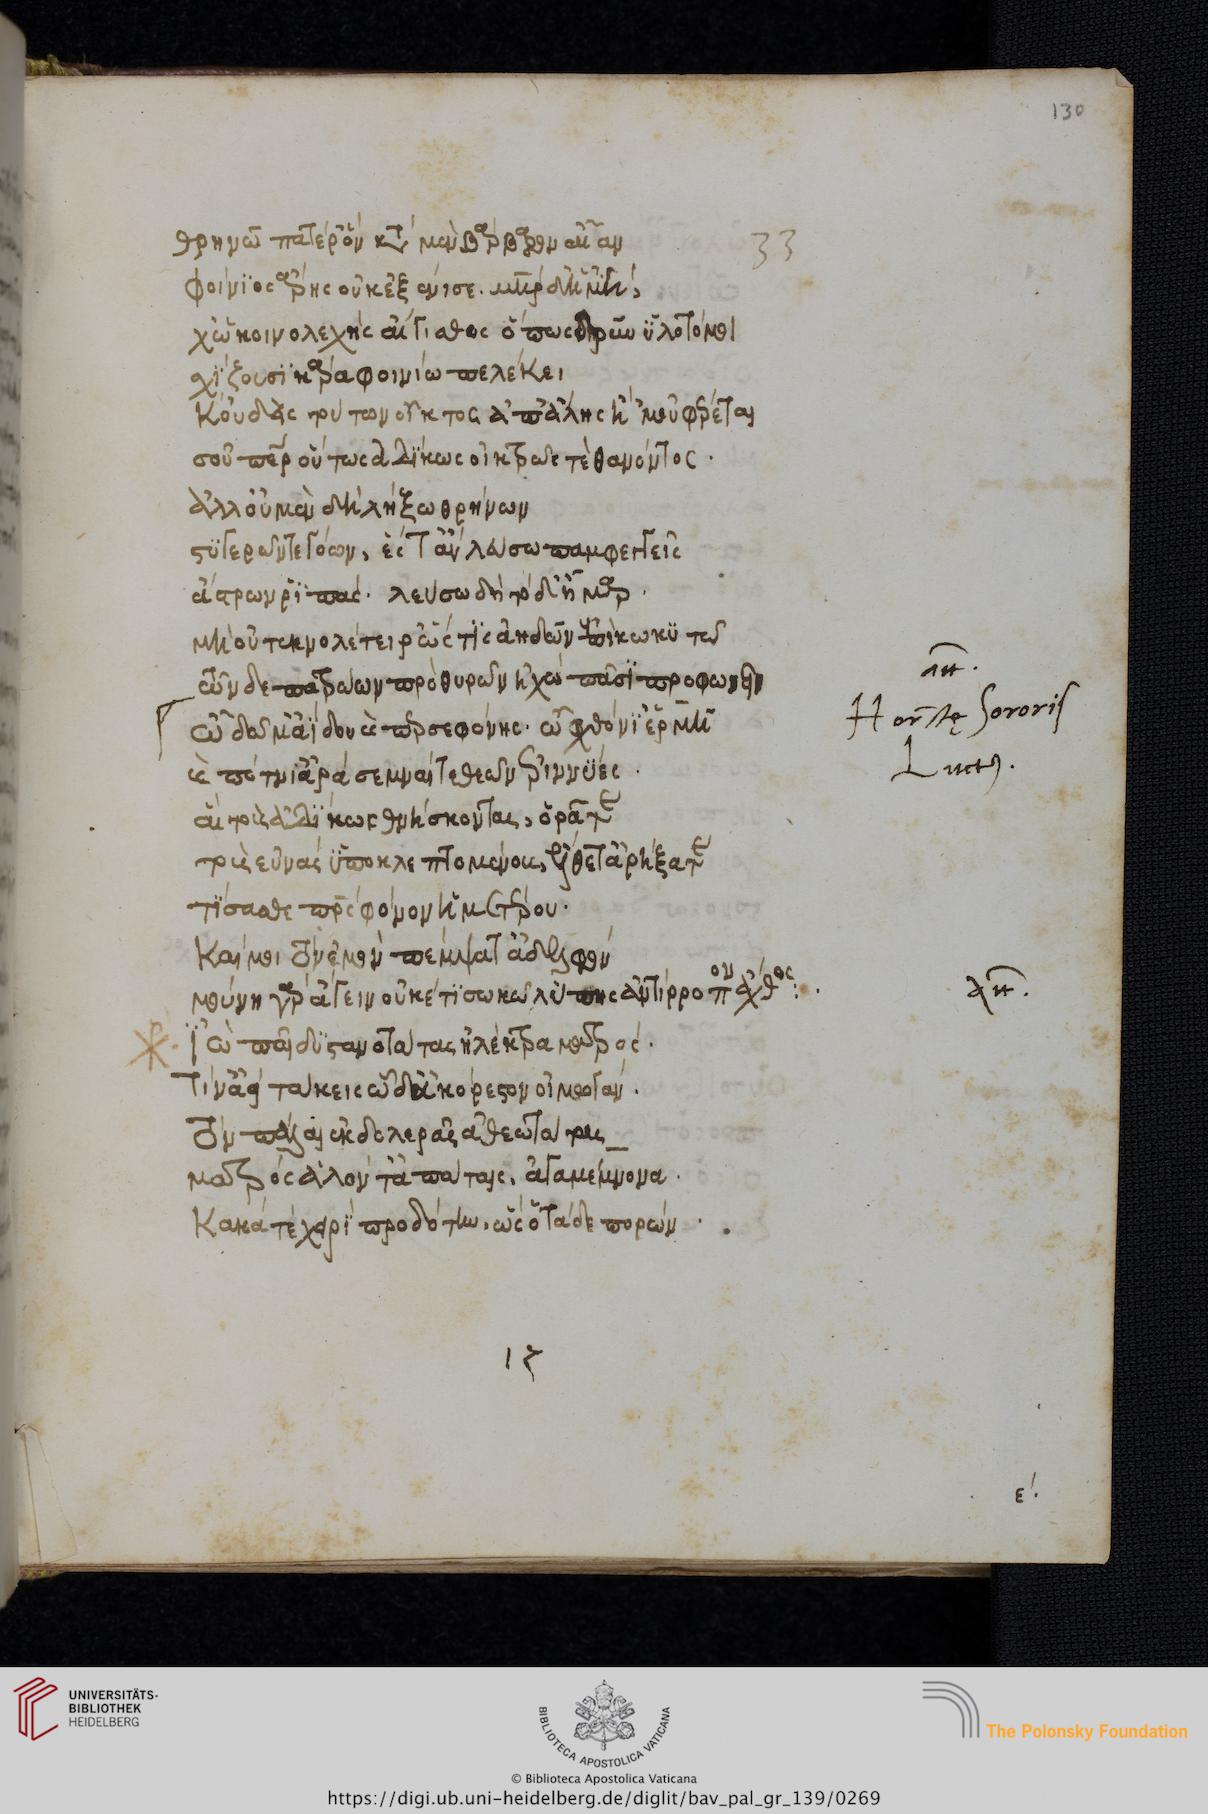 130
θρηνῶ πατέρ ὃν κατὰ μὲν βάρβαρον αἶαν
33
φοίνϊος ἄρης οὐκ ἐξένισε. μήτηρ δ' ἡ 'μὴ,
χὠ κοινολεχὴς αἴγισθος ὅπως δρῦν ὑλοτόμοι
σχίζουσϊ κάρα φοινίω πελέκει
κοὐδεὶς τούτων οἶκτος ἀπ' ἄλλης ἢ 'μοῦ φέρεται
σοῦ πάτερ οὕτως ἀδίκως οἰκτρῶς τε θανόντος.
ἀλλ' οὐ μὲν δὴ λήξω θρήνων
στυγερῶν τε γόων, ἔς τ' ἂν λεύσω παμφεγγεῖς
ἄστρων ῥϊπάς. λεύσω δὲ τόδ' ἦμαρ.
μὴ οὐ τεκνολέτειρ' ὥς τϊς ἀηδὼν ἐπὶ κωκυτῶ
τῶνδε πατρώων πρὸ θυρῶν ἠχὼ πᾶσϊ προφωνεῖν
ὦ δῶμ' ἀΐδου καὶ περσεφόνης. ὦ χθόνϊ' ἑρμῆ
καὶ πότνι' ἀρά σεμναί τε θεῶν ἐριννύες.
αἳ τοὺς ἀδίκως θνήσκοντας, ὁρᾶτε
τοὺς εὐνὰς ὑποκλεπτομένους, ἔλθετ' ἀρήξατε
τίσασθε πατρὸς φόνον ἡμετέρου.
καί μοι τὸν ἐμὸν πέμψατ' ἀδελφόν
μούνη γὰρ ἄγειν οὐκέτι σωκῶ λύπης ἀντίρροπον ἄχθος:.
Ϊὼ παῖ δυστανοτάτας ἠλέκτρα ματρός.
Τίν' ἀεὶ τάκεις ὧδ' ἀκόρεστον οἰμωγάν.
τὸν πάλαι ἐκ δολερᾶς ἀθεώτατα
ματρὸς ἁλόντ' ἀπάταις, ἀγαμέμνονα.
Κακᾶ τε χειρὶ πρόδοτον, ὡς ὁ τάδε πορὼν.
Sororis
Luctus.
17
ε'.
UNIVERSITÄTS-
BIBLIOTHEK
HEIDELBERG
BIBLIOTECA APOSTOLICA VATICANA
The Polonsky Foundation
© Biblioteca Apostolica Vaticana
https://digi.ub.uni-heidelberg.de/diglit/bav_pal_gr_139/0269